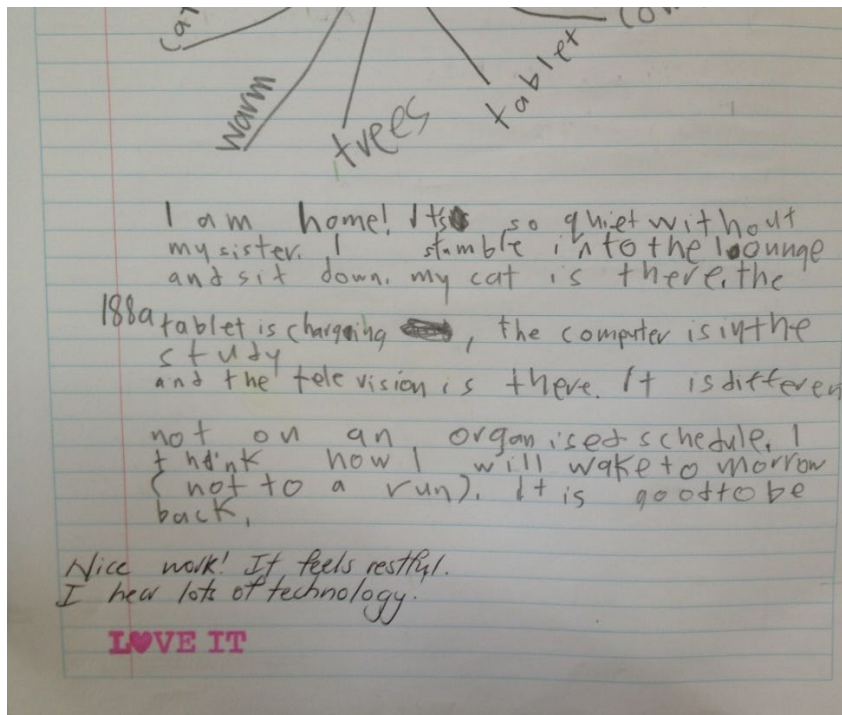 warm
trees
tablet
I am home! Its so quiet without
my sister. I stumble into the lounge
and sit down. my cat is there. the
188a
tablet is charging, the computer is in the
study
and the television is there. It is differen
not on an organised schedule. I
think how I will wake tomorrow
(not to a run). It is good to be
back.
Nice work! It feels restful.
I hear lots of technology.
LOVE IT